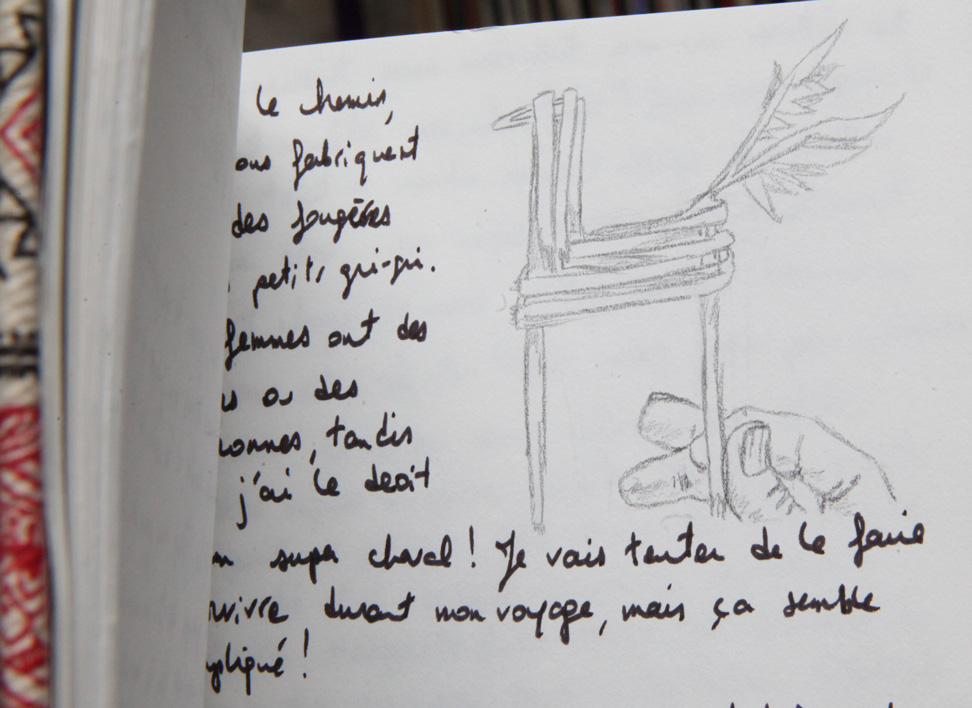 le chemin,
ous fabriquent
des fougères
petits gri-gri.
femmes ont des
s ou des
onnes, tandis
j'ai le droit
n super cheval ! Je vais tenter de le faire
rvivre durant mon voyage, mais ça semble
pliqué !